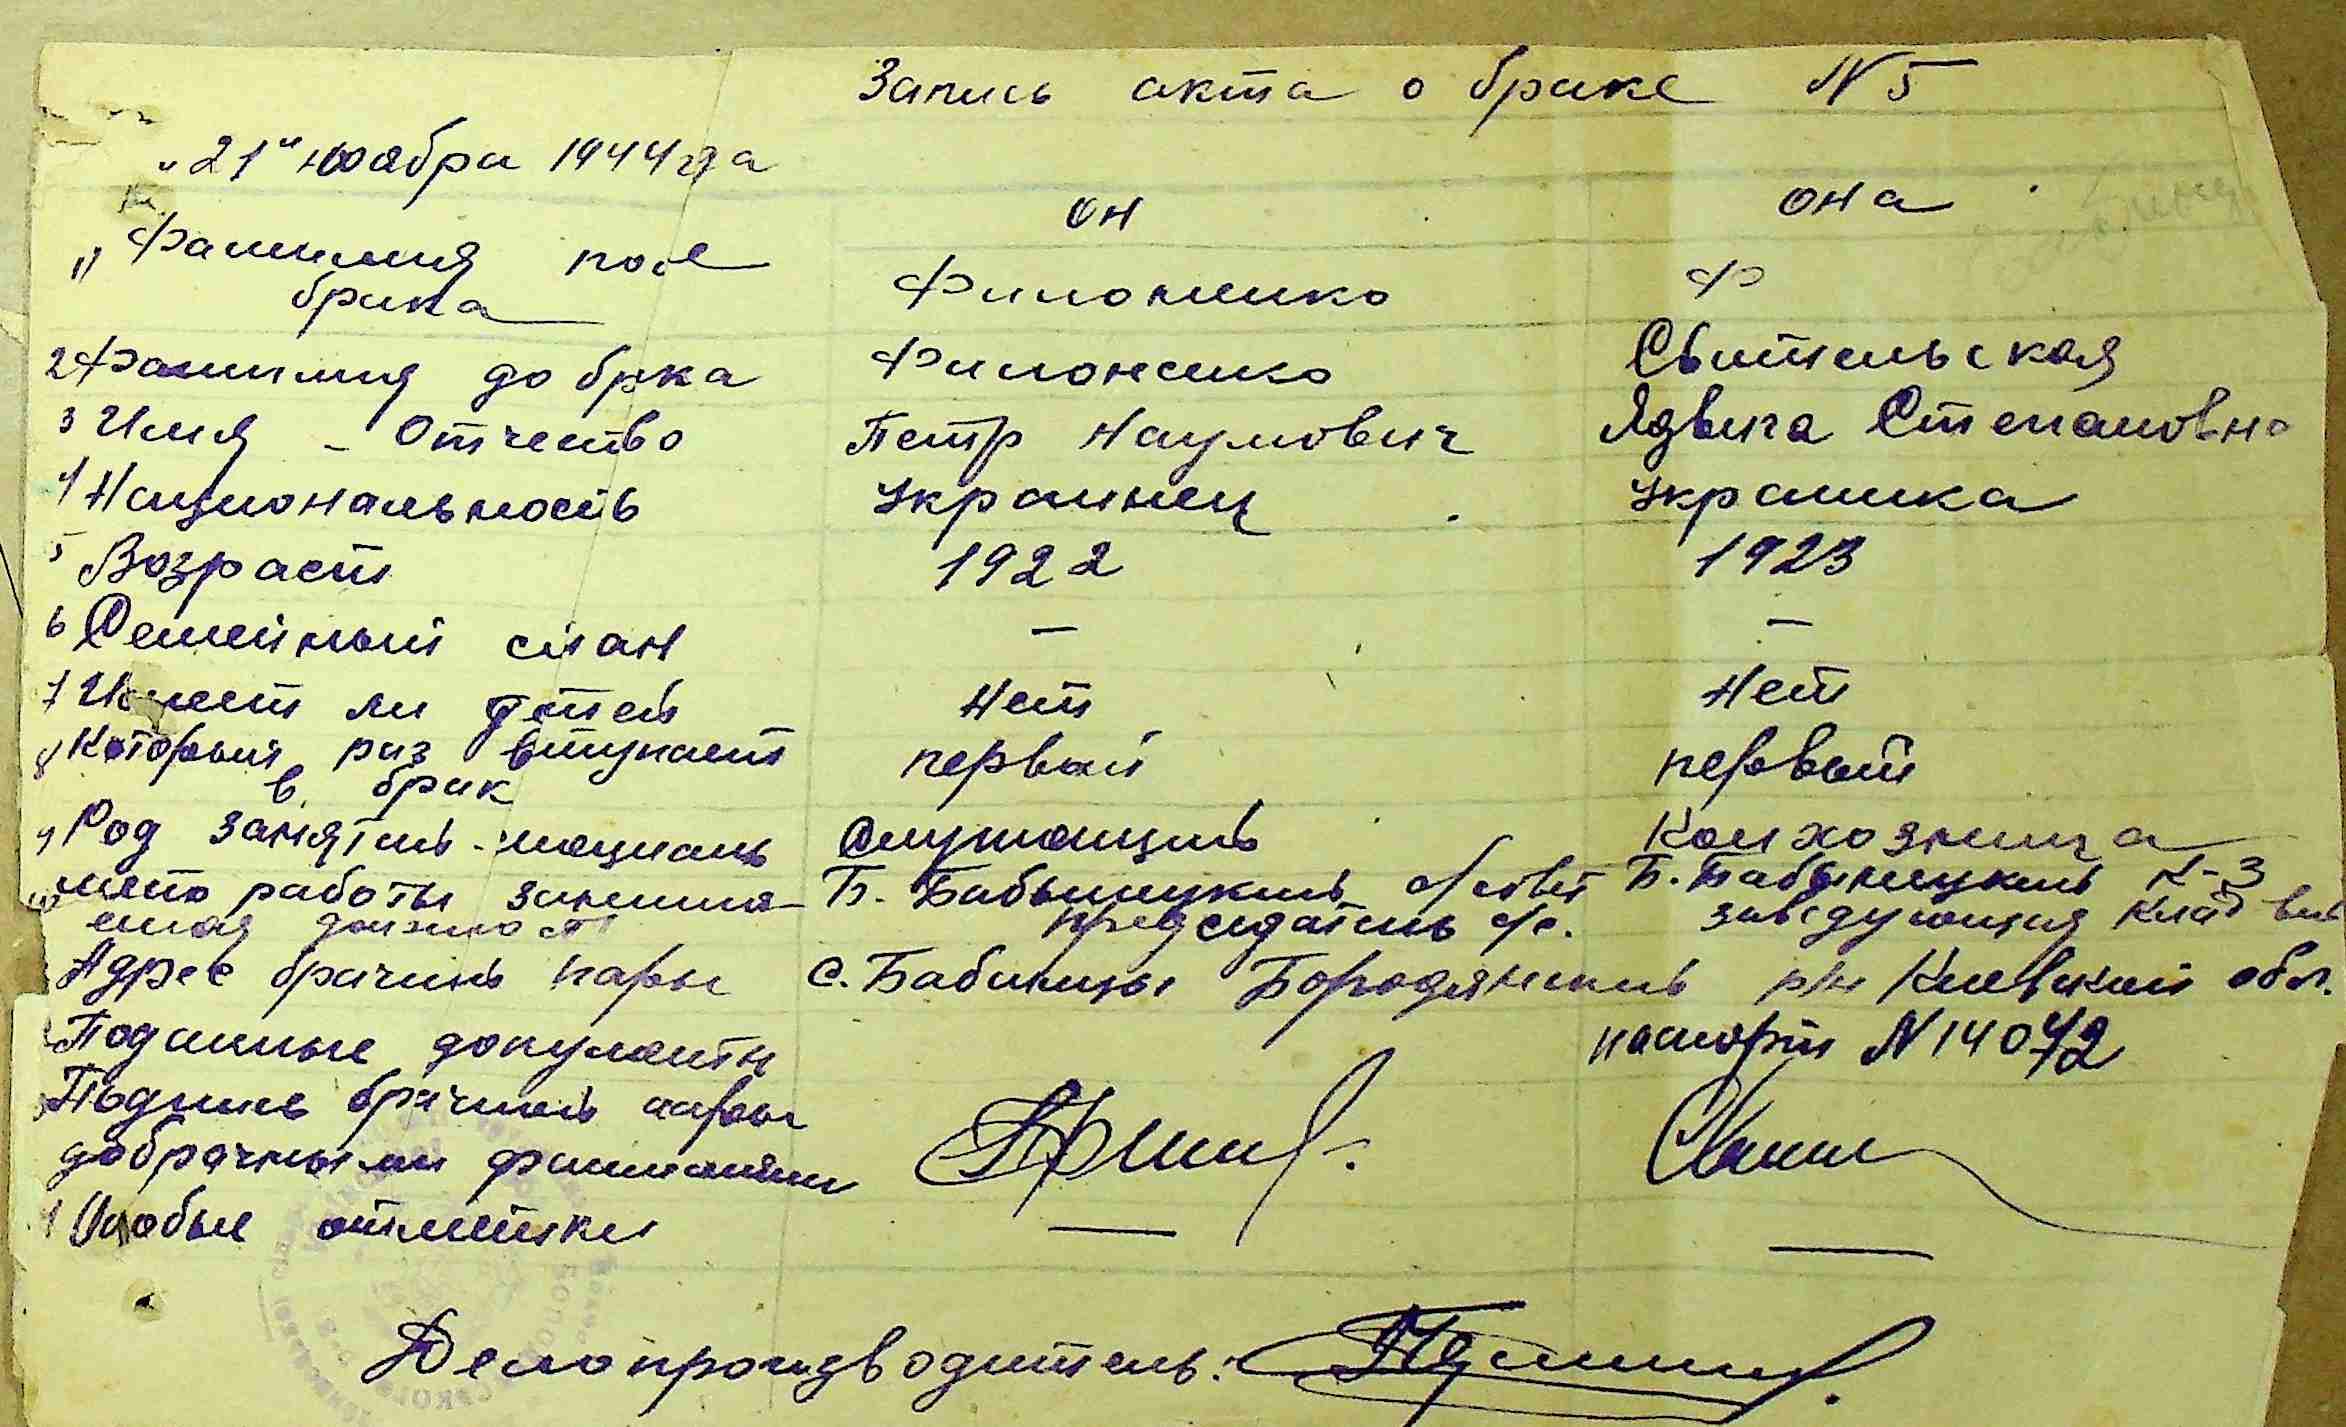 Запись акта о браке N 5
"21" ноября 1944 г да
он она
1) Фамилия посл Филоненко Ф
брака
2 Фамилия до брка Филоненко Свительская
3 Имя - Отчество Петр Наумович Ядвига Степановна
4 Национальность Украинец Украинка
5 Возраст 1922 1923
6 Семейный стан — —
7 Имеет ли детей Нет Нет
8 Который раз вступает первый первый
в брак
9 Род занятий Служащий Колхозница
10 место работы занима- Б. Бабинецкий с/совет Б. Бабинецкий к-з
емая должност председатель с/с. заведующая клад
Адрес брачний пары с. Бабинцы Бородянский р-н Киевский обл.
Поданные документы паспорт N 14072
Подпись брачной пары
добрачными фамилиями
Особые отметки — —
Делопроизводитель: